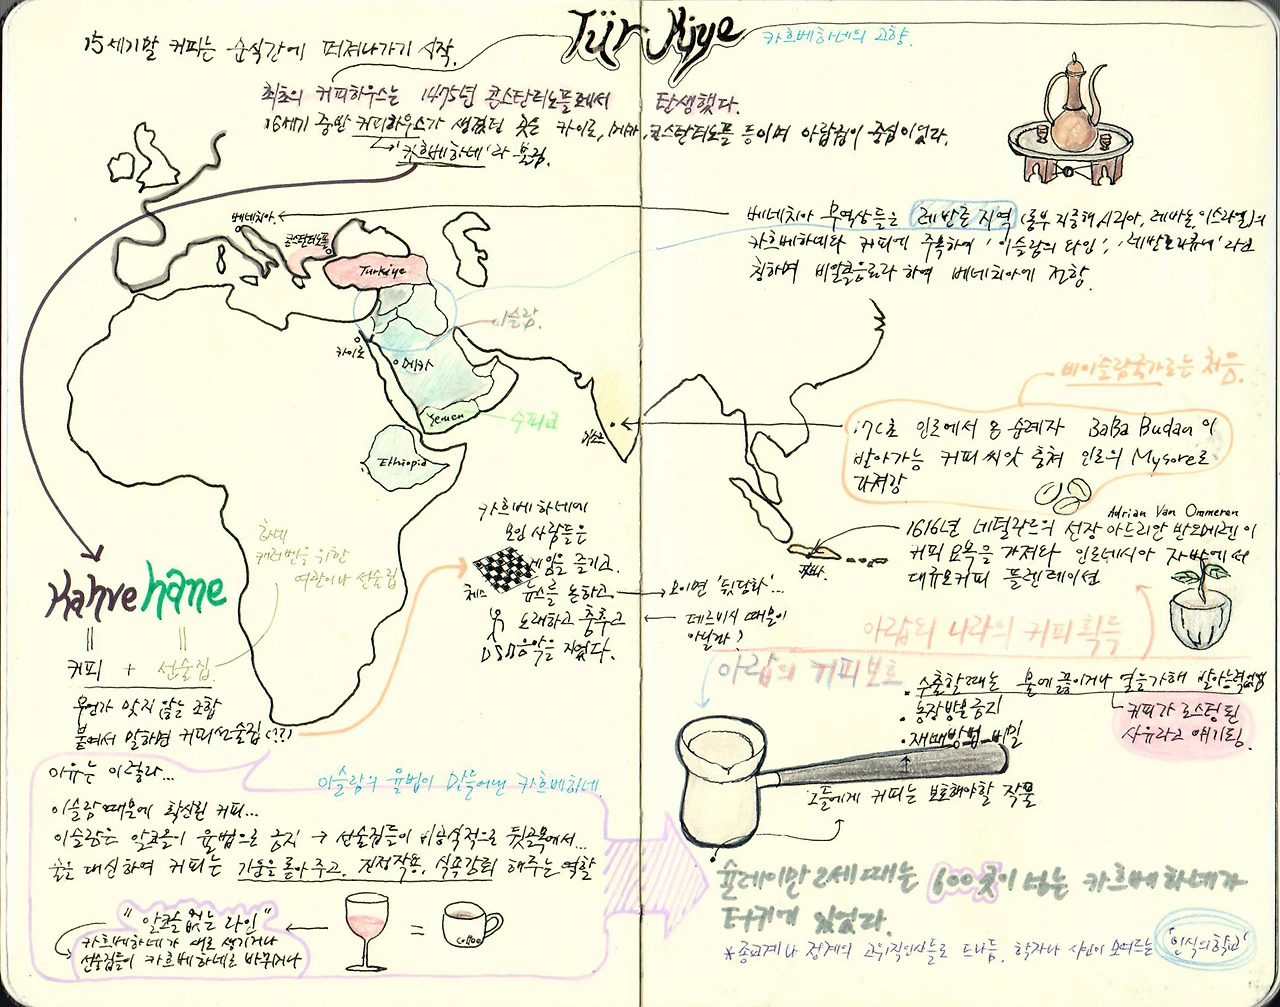 Türkiye
카흐베하네의 고향.
15세기말 커피는 순식간에 퍼져나가기 시작.
최초의 커피하우스는 1475년 콘스탄티노플에서 탄생했다.
16세기 중반 커피하우스가 생겼던 곳은 카이로, 메카, 콘스탄티노플 등이며 아랍권이 중심이었다.
'카흐베하네'라 불림.
베네치아
콘스탄티노플
Turkiye
이슬람.
카이로
메카
Yemen
수피교
Ethiopia
마이소르
자바
베네치아 무역상들은 레반트 지역 (동부 지중해, 시리아, 레바논, 이스라엘)의
카흐베하네와 커피에 주목하여 '이슬람의 와인',
칭하며 비알콜음료라 하여 베네치아에 전함.
비이슬람국가로는 처음.
17C초 인도에서 온 순례자 BaBa Budan이
발아가능 커피 씨앗 훔쳐 인도의 Mysore로
가져감
Adrian Van Ommeren
1616년 네덜란드의 선장 아드리안 반오메렌이
커피 묘목을 가져다 인도네시아 자바에서
대규모커피 플랜테이션
아랍외 나라의 커피획득
아랍의 커피보호
• 수출할때는 물에 끓이거나 열을가해 발아능력없앰
• 농장방문금지
• 재배방법 비밀
커피가 로스팅된
사유라고 얘기됨.
그들에게 커피는 보호해야할 작물
Kahvehane
커피 + 선술집
하네
캐러밴을 위한
여관이나 선술집
무언가 맞지 않는 조합
붙여서 말하면 커피선술집(!?)
카흐베하네에
모인 사람들은
체스
게임을 즐기고.
뉴스를 논하고
노래하고 춤추고
음악을 지었다.
모이면 '뒷담화'...
데르비시 때문이
아닐까?
이유는 이렇다...
이슬람의 율법이 만들어낸 카흐베하네
이슬람때문에 확산된 커피...
이슬람은 알코올이 율법으로 금지 → 선술집들이 비공식적으로 뒷골목에서...
술을 대신하여 커피는 기운을 돋아주고, 진정작용, 식욕감퇴 해주는 역할
"알코올없는 와인"
카흐베하네가 새로 생기거나
선술집들이 카흐베하네로 바뀌거나
=
coffee
술레이만 2세 때는 600곳이 넘는 카흐베하네가
터키에 있었다.
*종교계나 정계의 고위직인사들로 드나듬. 학자나 시인이 모여드는 '인식의학교'